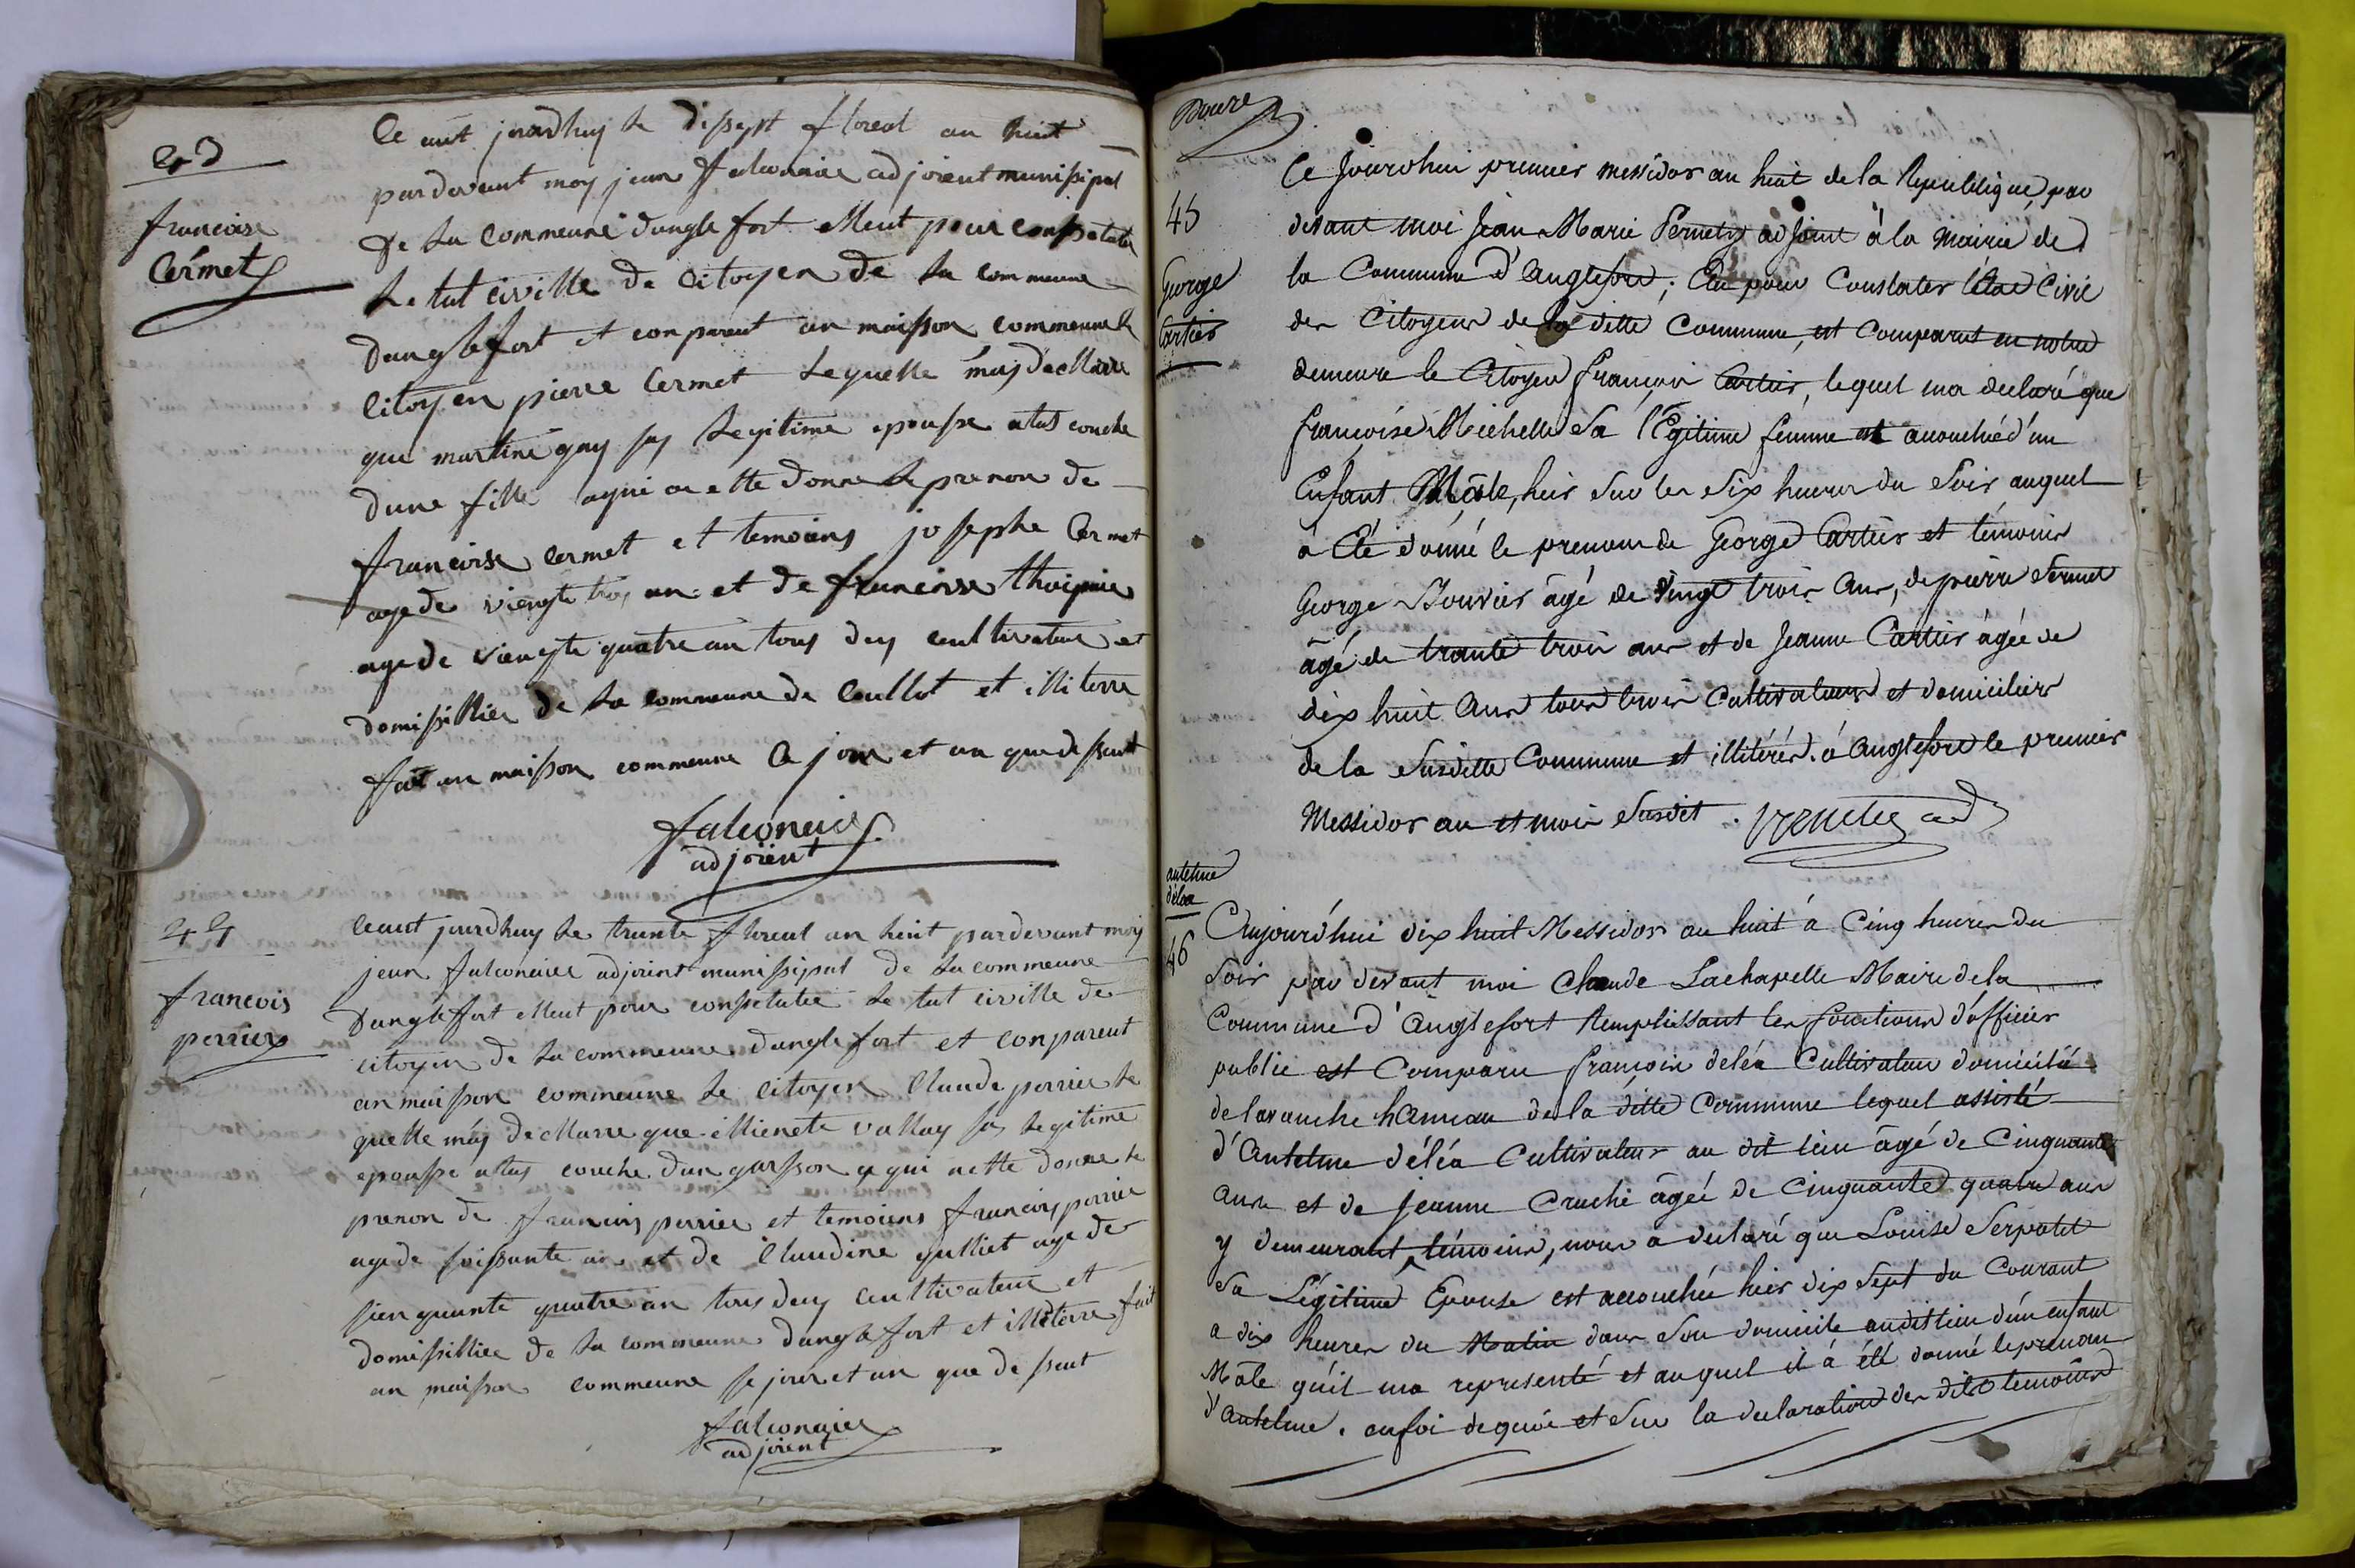 francoise
Cermet
Ce aut jourdhuy le disept floreal an huit
pardevant moy jean falconnier adjoient munissipal
de la commeune danglefort elleut pour conpetater
le tat civille de citoyen de la commeune
danglefort et conparent an maisson commeune le
citoyen pierre Cermet lequelle mas decllare
que martine gay sas legitime epousse atas couche
dune fille a qui on ette donne le prenon de
francoise Cermet et temoiens josephe Cermet
age de viengte troy an et de francoise
age de viengte quatre an tous deux ceultivateur et
domissillier de la commeune de et illiterre
fait an maisson commeune le jour et an que dessut
falconnier
adjoient
44
francois
perrier
Ceaut jourdhuy le trante floreal an huit pardevant moy
jean falconnier adjoient munissipal de la commeune
danglefort elleut pour conpetater le tat civille de
citoyen de la commeune danglefort et conparent
an maisson commeune le citoyen Claude perrier le
quelle mas decllarre que vallay sas legitime
epousse atas couche dun garsson a qui on ette donne le
prenon de francois perrier et temoiens francois perrier
age de soissante an et de Claudine gulliet age de
sienquante quatre an tous deux ceultivateur et
domissillier de la commeune danglefort et illiterre fait
an maisson commeune le jour et an que dessut
falconnier
adjoient
Douze
45
George
Cartier
Ce Jourdhui premier messidor an huit de la Republique, par
devant moi Jean Marie Pernety adjoint à la Mairie de
la Commune d'anglefort; Elu pour Constater l'état Civil
des Citoyens de la ditte Commune, est Comparut en notre
demeure le Citoyen françois Cartier, lequel ma declaré que
françoise Michelle Sa légitime femme est acouchée d'un
Enfant Mâle, hier sur les six heures du soir auquel
à Eté donné le prenom de George Cartier et témoins
George Bouvier âgé de vingt trois ans, de pierre Sermet
âgé de trante trois ans et de Jeanne Cartier âgée de
dix huit ans tous trois Cultivateurs et domiciliers
de la susditte Commune et illitérés. à anglefort le premier
Messidor an et mois susdit.
antelme
déléa
46
Aujourd'hui dix huit Messidor an huit à Cinq heures du
soir par devant moi Claude Lachapelle Maire de la
Commune d'anglefort Remplissant les fonctions d'officier
public est Comparu françois deléa Cultivateur domicilié
de lavanche hameau de la ditte Commune lequel assisté
d'Antelme déléa Cultivateur au dit lieu âgé de Cinquante
ans et de jeanne Cruche âgée de Cinquante quatre ans
y demeurant, témoins, nous a declaré que Louise Serpolet
Sa Légitime Epouse est accouchée hier dix sept du Courant
a dix heures du Matin dans son domicile audit lieu d'un enfant
Mâle qu'il ma representé et auquel il à été donné le prenom
d'antelme. en foi de quoi et sur la declaration des dits temoins